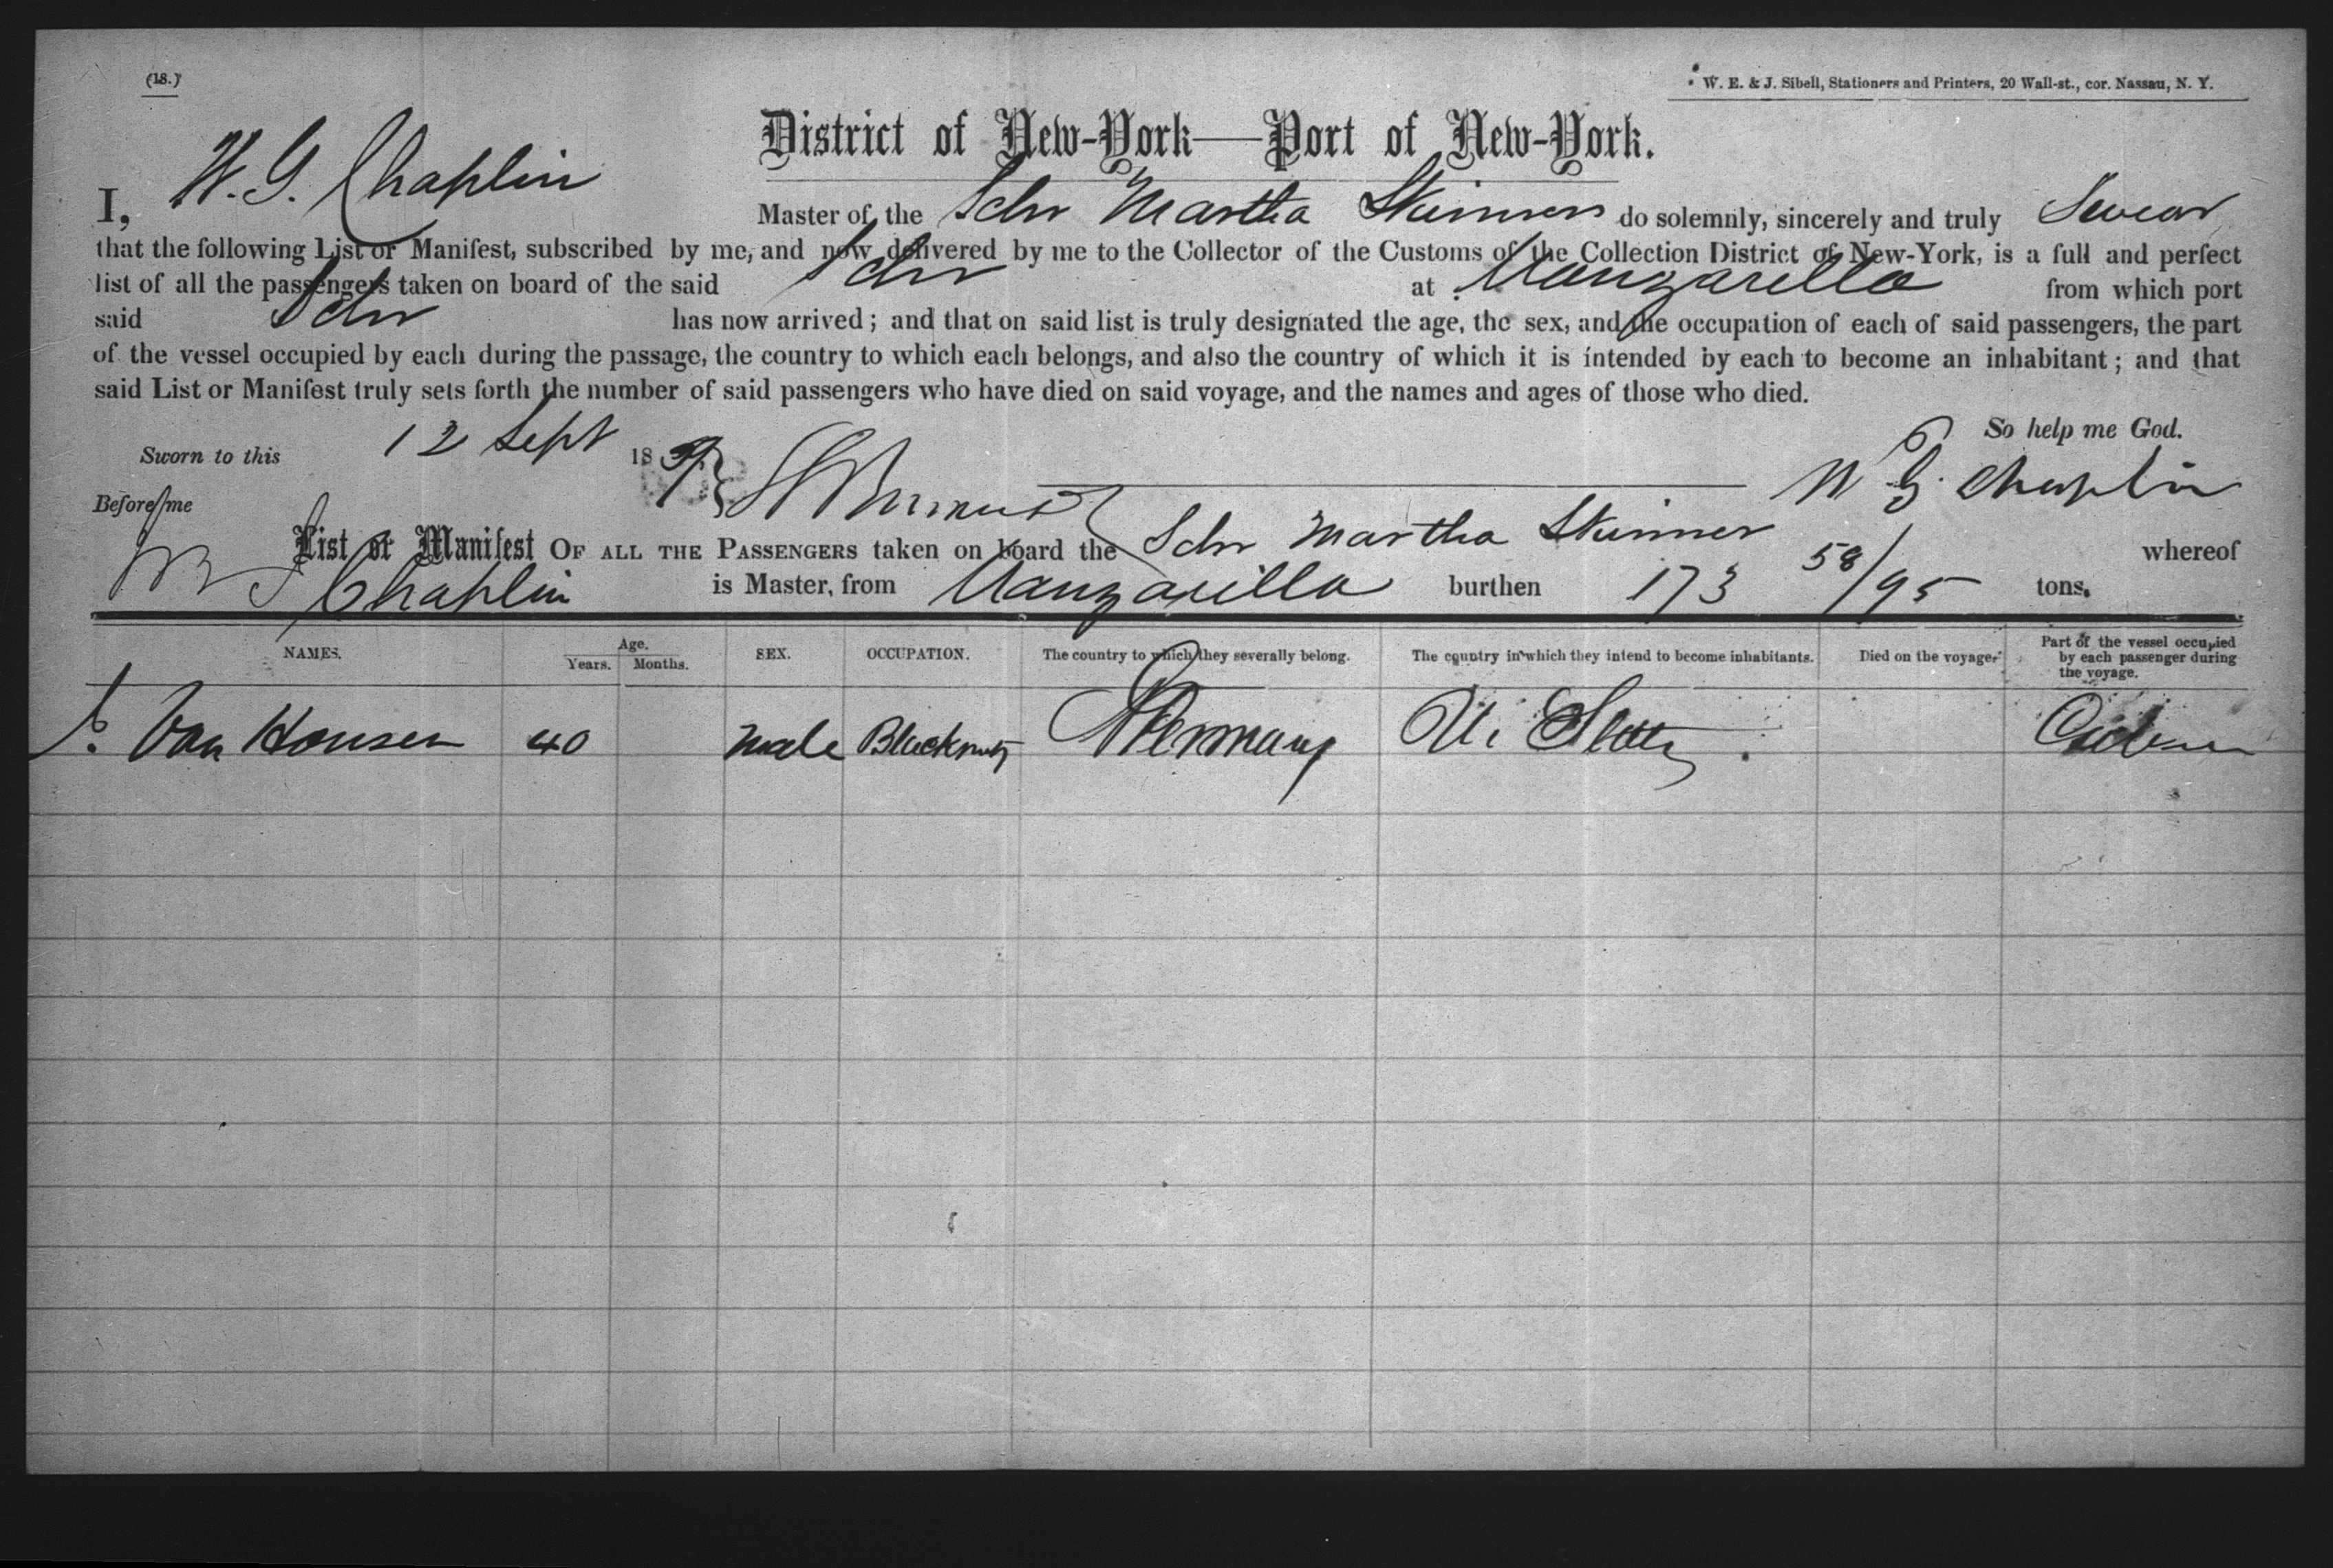 (18.)
W. E. & J. Sibell, Stationers and Printers, 20 Wall-st., cor. Nassau, N. Y.
District of New-York—Port of New-York.
I, W. G. Chaplin Master of the Schr Martha Skinner do solemnly, sincerely and truly Swear
that the following List or Manifest, subscribed by me, and now delivered by me to the Collector of the Customs of the Collection District of New-York, is a full and perfect
list of all the passengers taken on board of the said Schr at Manzanilla from which port
said Schr has now arrived; and that on said list is truly designated the age, the sex, and the occupation of each of said passengers, the part
of the vessel occupied by each during the passage, the country to which each belongs, and also the country of which it is intended by each to become an inhabitant; and that
said List or Manifest truly sets forth the number of said passengers who have died on said voyage, and the names and ages of those who died.
So help me God.
Sworn to this 12 Sept 18
Before me
W G Chaplin
List or Manifest OF ALL THE PASSENGERS taken on board the Schr Martha Skinner whereof
Chaplin is Master, from Manzanilla burthen 173 58/95 tons.
NAMES. Age. Years. Months. SEX. OCCUPATION. The country to which they severally belong. The country in which they intend to become inhabitants. Died on the voyage. Part of the vessel occupied by each passenger during the voyage.
Van Housen 40 male Germany U. States